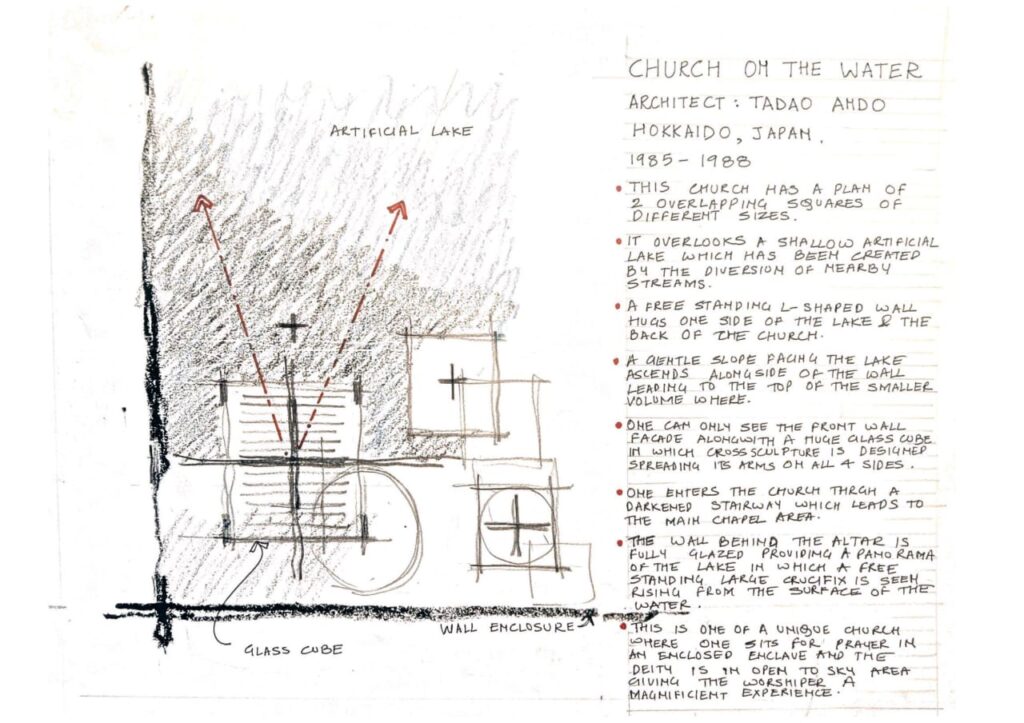 ARTIFICIAL LAKE
GLASS CUBE
WALL ENCLOSURE
CHURCH ON THE WATER
ARCHITECT : TADAO ANDO
HOKKAIDO, JAPAN.
1985 - 1988
• THIS CHURCH HAS A PLAN OF
2 OVERLAPPING SQUARES OF
DIFFERENT SIZES.
• IT OVERLOOKS A SHALLOW ARTIFICIAL
LAKE WHICH HAS BEEN CREATED
BY THE DIVERSION OF NEARBY
STREAMS.
• A FREE STANDING L-SHAPED WALL
HUGS ONE SIDE OF THE LAKE & THE
BACK OF THE CHURCH.
• A GENTLE SLOPE FACING THE LAKE
ASCENDS ALONGSIDE OF THE WALL
LEADING TO THE TOP OF THE SMALLER
VOLUME WHERE.
• ONE CAN ONLY SEE THE FRONT WALL
FACADE ALONGWITH A HUGE GLASS CUBE
IN WHICH CROSS SCULPTURE IS DESIGNED
SPREADING ITS ARMS ON ALL 4 SIDES.
• ONE ENTERS THE CHURCH THRGH A
DARKENED STAIRWAY WHICH LEADS TO
THE MAIN CHAPEL AREA.
• THE WALL BEHIND THE ALTAR IS
FULLY GLAZED PROVIDING A PANORAMA
OF THE LAKE IN WHICH A FREE
STANDING LARGE CRUCIFIX IS SEEN
RISING FROM THE SURFACE OF THE
WATER.
• THIS IS ONE OF A UNIQUE CHURCH
WHERE ONE SITS FOR PRAYER IN
AN ENCLOSED ENCLAVE AND THE
DEITY IS IN OPEN TO SKY AREA
GIVING THE WORSHIPER A
MAGNIFICIENT EXPERIENCE.